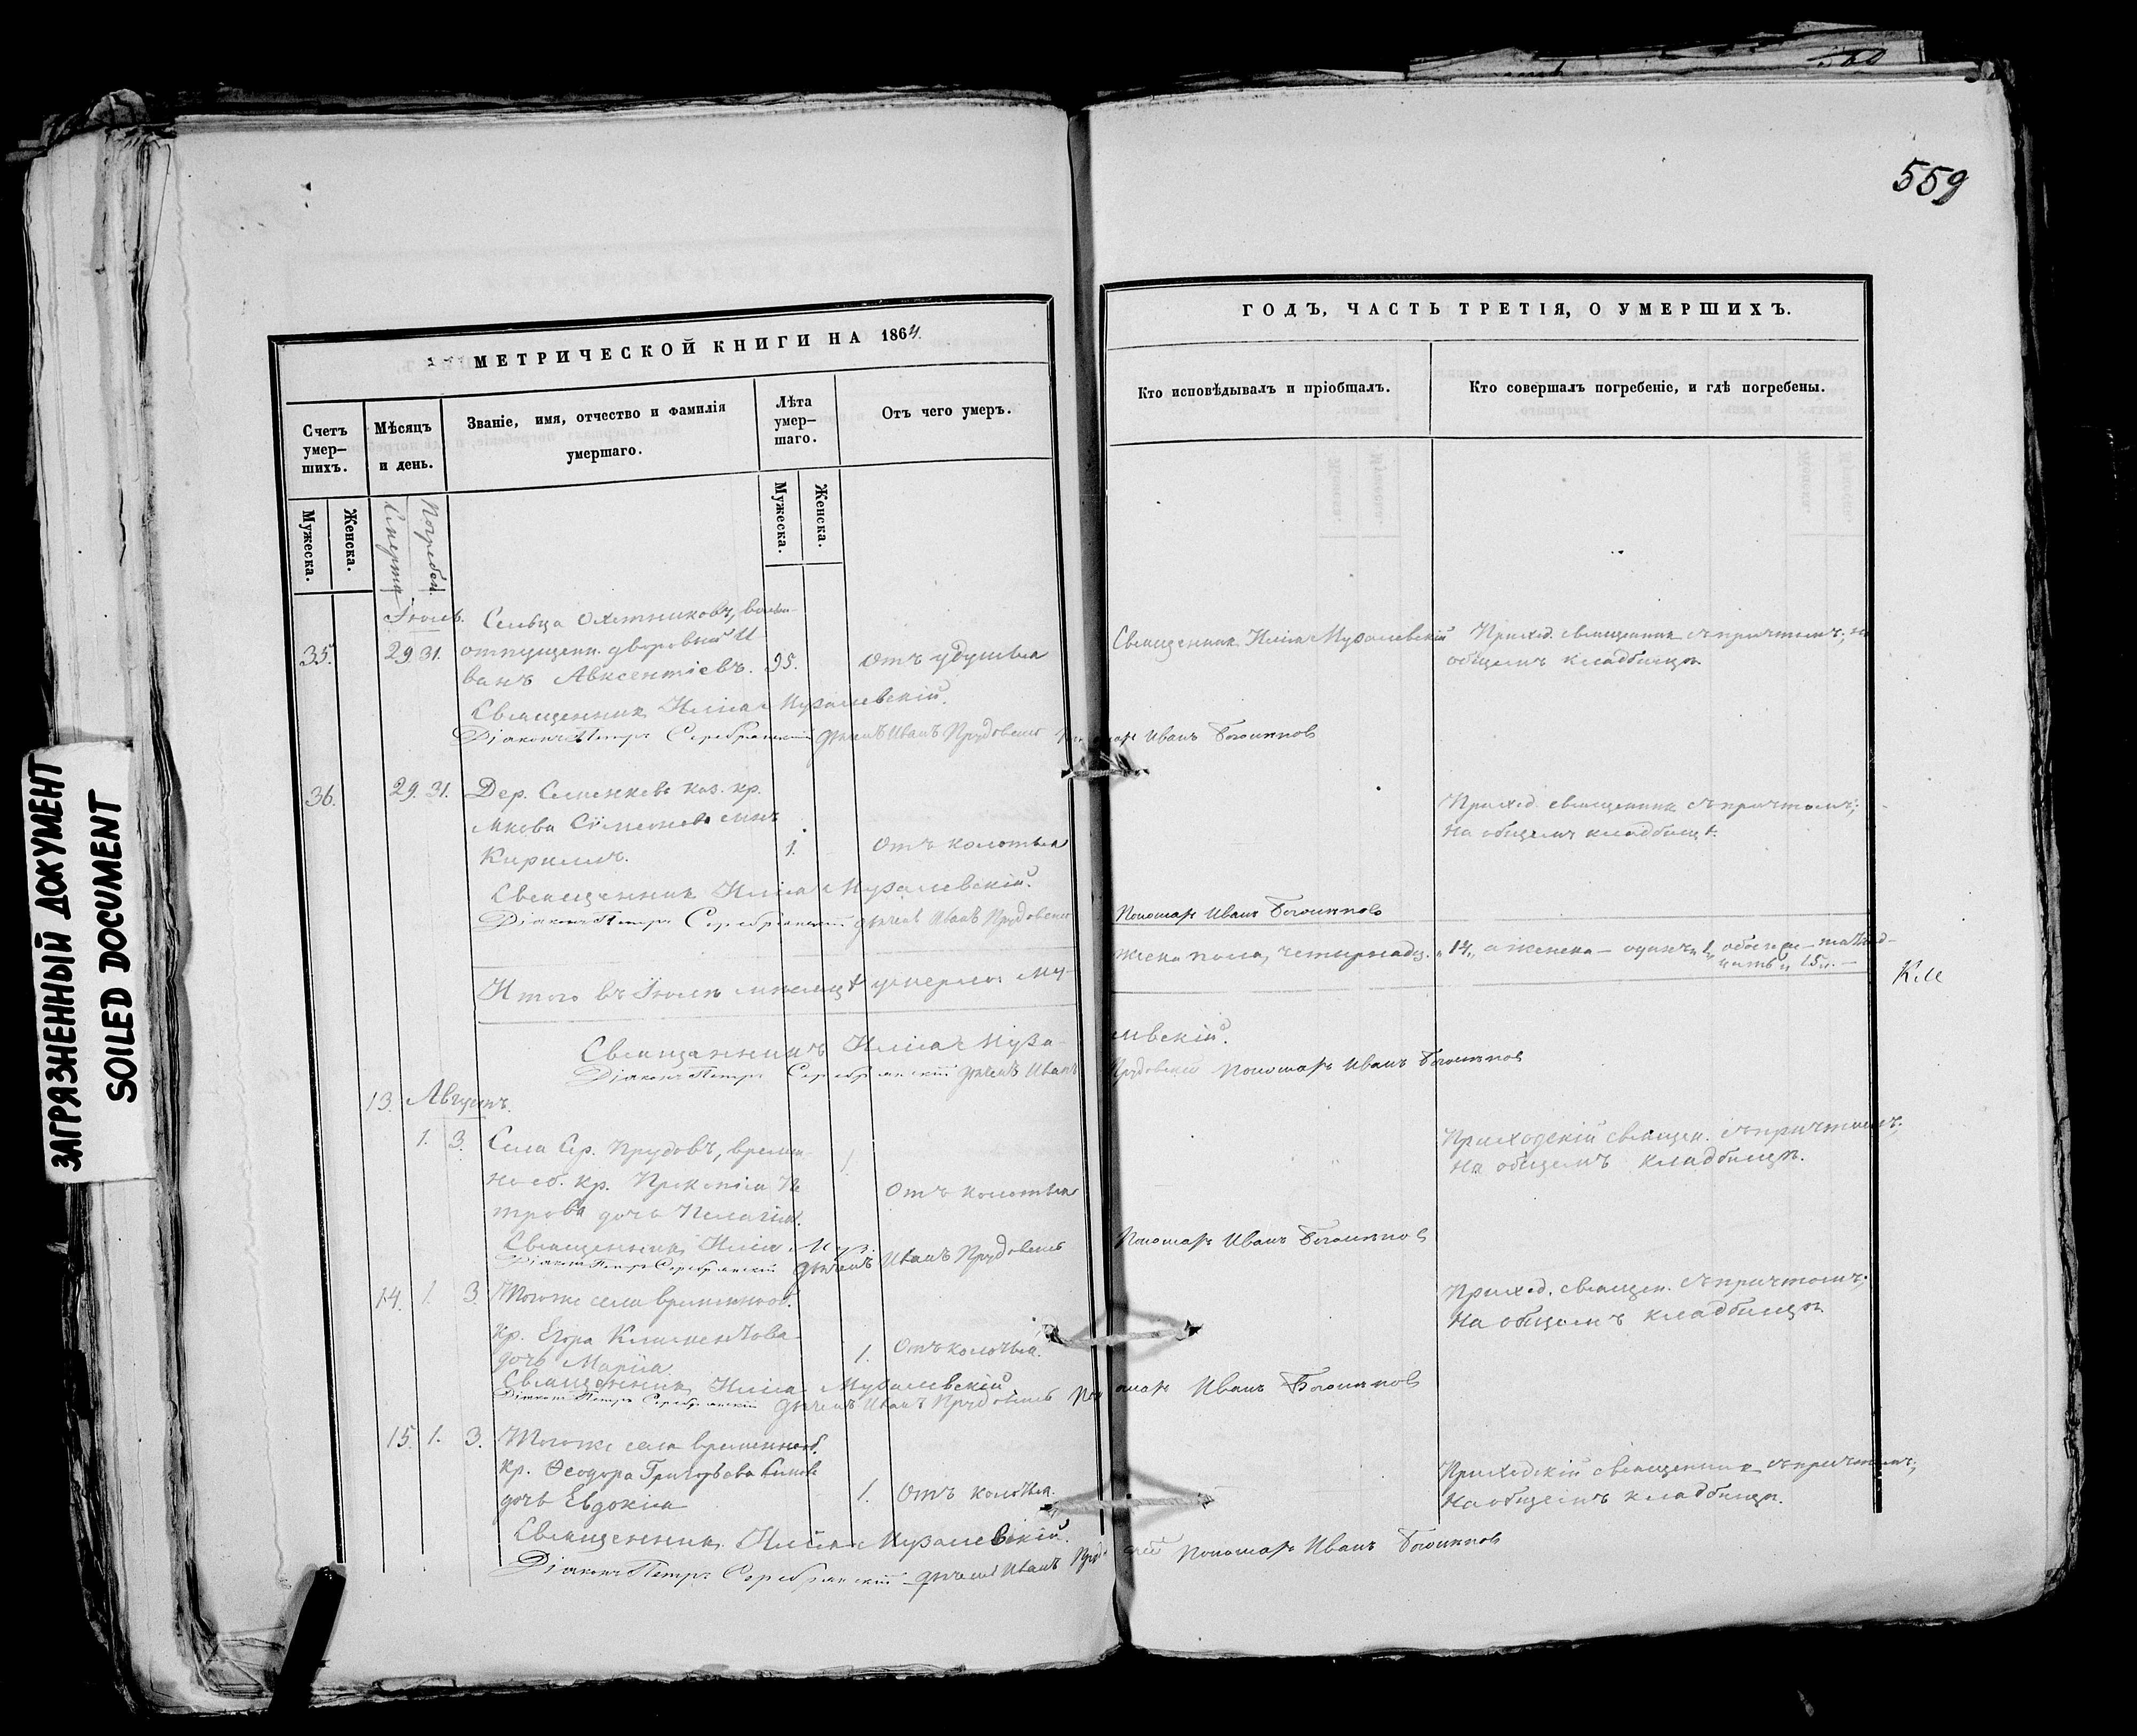 559
МЕТРИЧЕСКОЙ КНИГИ НА 1864.
Счетъ умер-
шихъ.
Мѣсяцъ
и день.
Званіе, имя, отчество и фамилія
умершаго.
Лѣта
умер-
шаго.
Отъ чего умеръ.
Мужеска.
Женска.
Смерти
Погребен.
Мужеска.
Женска.
Іюль. Сельца Охотниковъ,
35. 29 31. отпущенн. дворовый И
ванъ Авксентіевъ. 95. Отъ удушья
Священникъ Илія Музалевскій.
Діаконъ Петръ Серебрянскій Дьячекъ Иванъ Прудовскій
36. 29. 31. Дер. Семенкова каз. кр.
Якова Сѵмеонова сынъ
Кириллъ. 1. Отъ колотья
Священникъ Илія Музалевскій.
Діаконъ Петръ Серебрянскій Дьячекъ Иванъ Прудовскій
Итого въ Іюлѣ мѣсяцѣ умерло: му-
Священникъ Илія Муза-
Діаконъ Петръ Серебрянскій Дьячекъ Иванъ
13. Августъ.
1. 3. Села Сер. Прудовъ, времен-
ноб. кр. Прокопія Пе 1.
трова дочь Пелагія. Отъ колотья
Священникъ Илія Муз.
Діаконъ Петръ Серебрянскій Дьячекъ Иванъ Прудовскій
14. 1. 3. Тогоже села временнооб.
кр. Егора Климентова
дочь Марія 1. Отъ колотья.
Священникъ Илія Музалевскій
Діаконъ Петръ Серебрянскій Дьячекъ Иванъ Прудовскій
15. 1. 3. Тогоже села временнооб.
кр. Ѳеодора Григорьева
дочь Евдокія 1. Отъ колотья.
Священникъ Илія Музалевскій.
Діаконъ Петръ Серебрянскій Дьячекъ Иванъ
ГОДЪ, ЧАСТЬ ТРЕТІЯ, О УМЕРШИХЪ.
Кто исповѣдывалъ и пріобщалъ.
Кто совершалъ погребеніе, и гдѣ погребены.
Священникъ Илія Музалевскій Приход. священникъ съ причтомъ; на
общемъ кладбищѣ
Иванъ
Приход. священникъ съ причтомъ;
на общемъ кладбищѣ.
Пономарь Иванъ
жеска пола, четырнадц. „14„ а женска – одинъ „1„ обоего же – пятнад-
цать „15„. –
левскій.
Прудовскій Пономарь Иванъ
Приходскій священ. съ причтомъ;
на общемъ кладбищѣ.
Пономарь Иванъ
Приход. священ. съ причтомъ;
на общемъ кладбищѣ
Иванъ
Приходскій священникъ съ причтомъ;
на общемъ кладбищѣ.
Пономарь Иванъ
ЗАГРЯЗНЕННЫЙ ДОКУМЕНТ
SOILED DOCUMENT